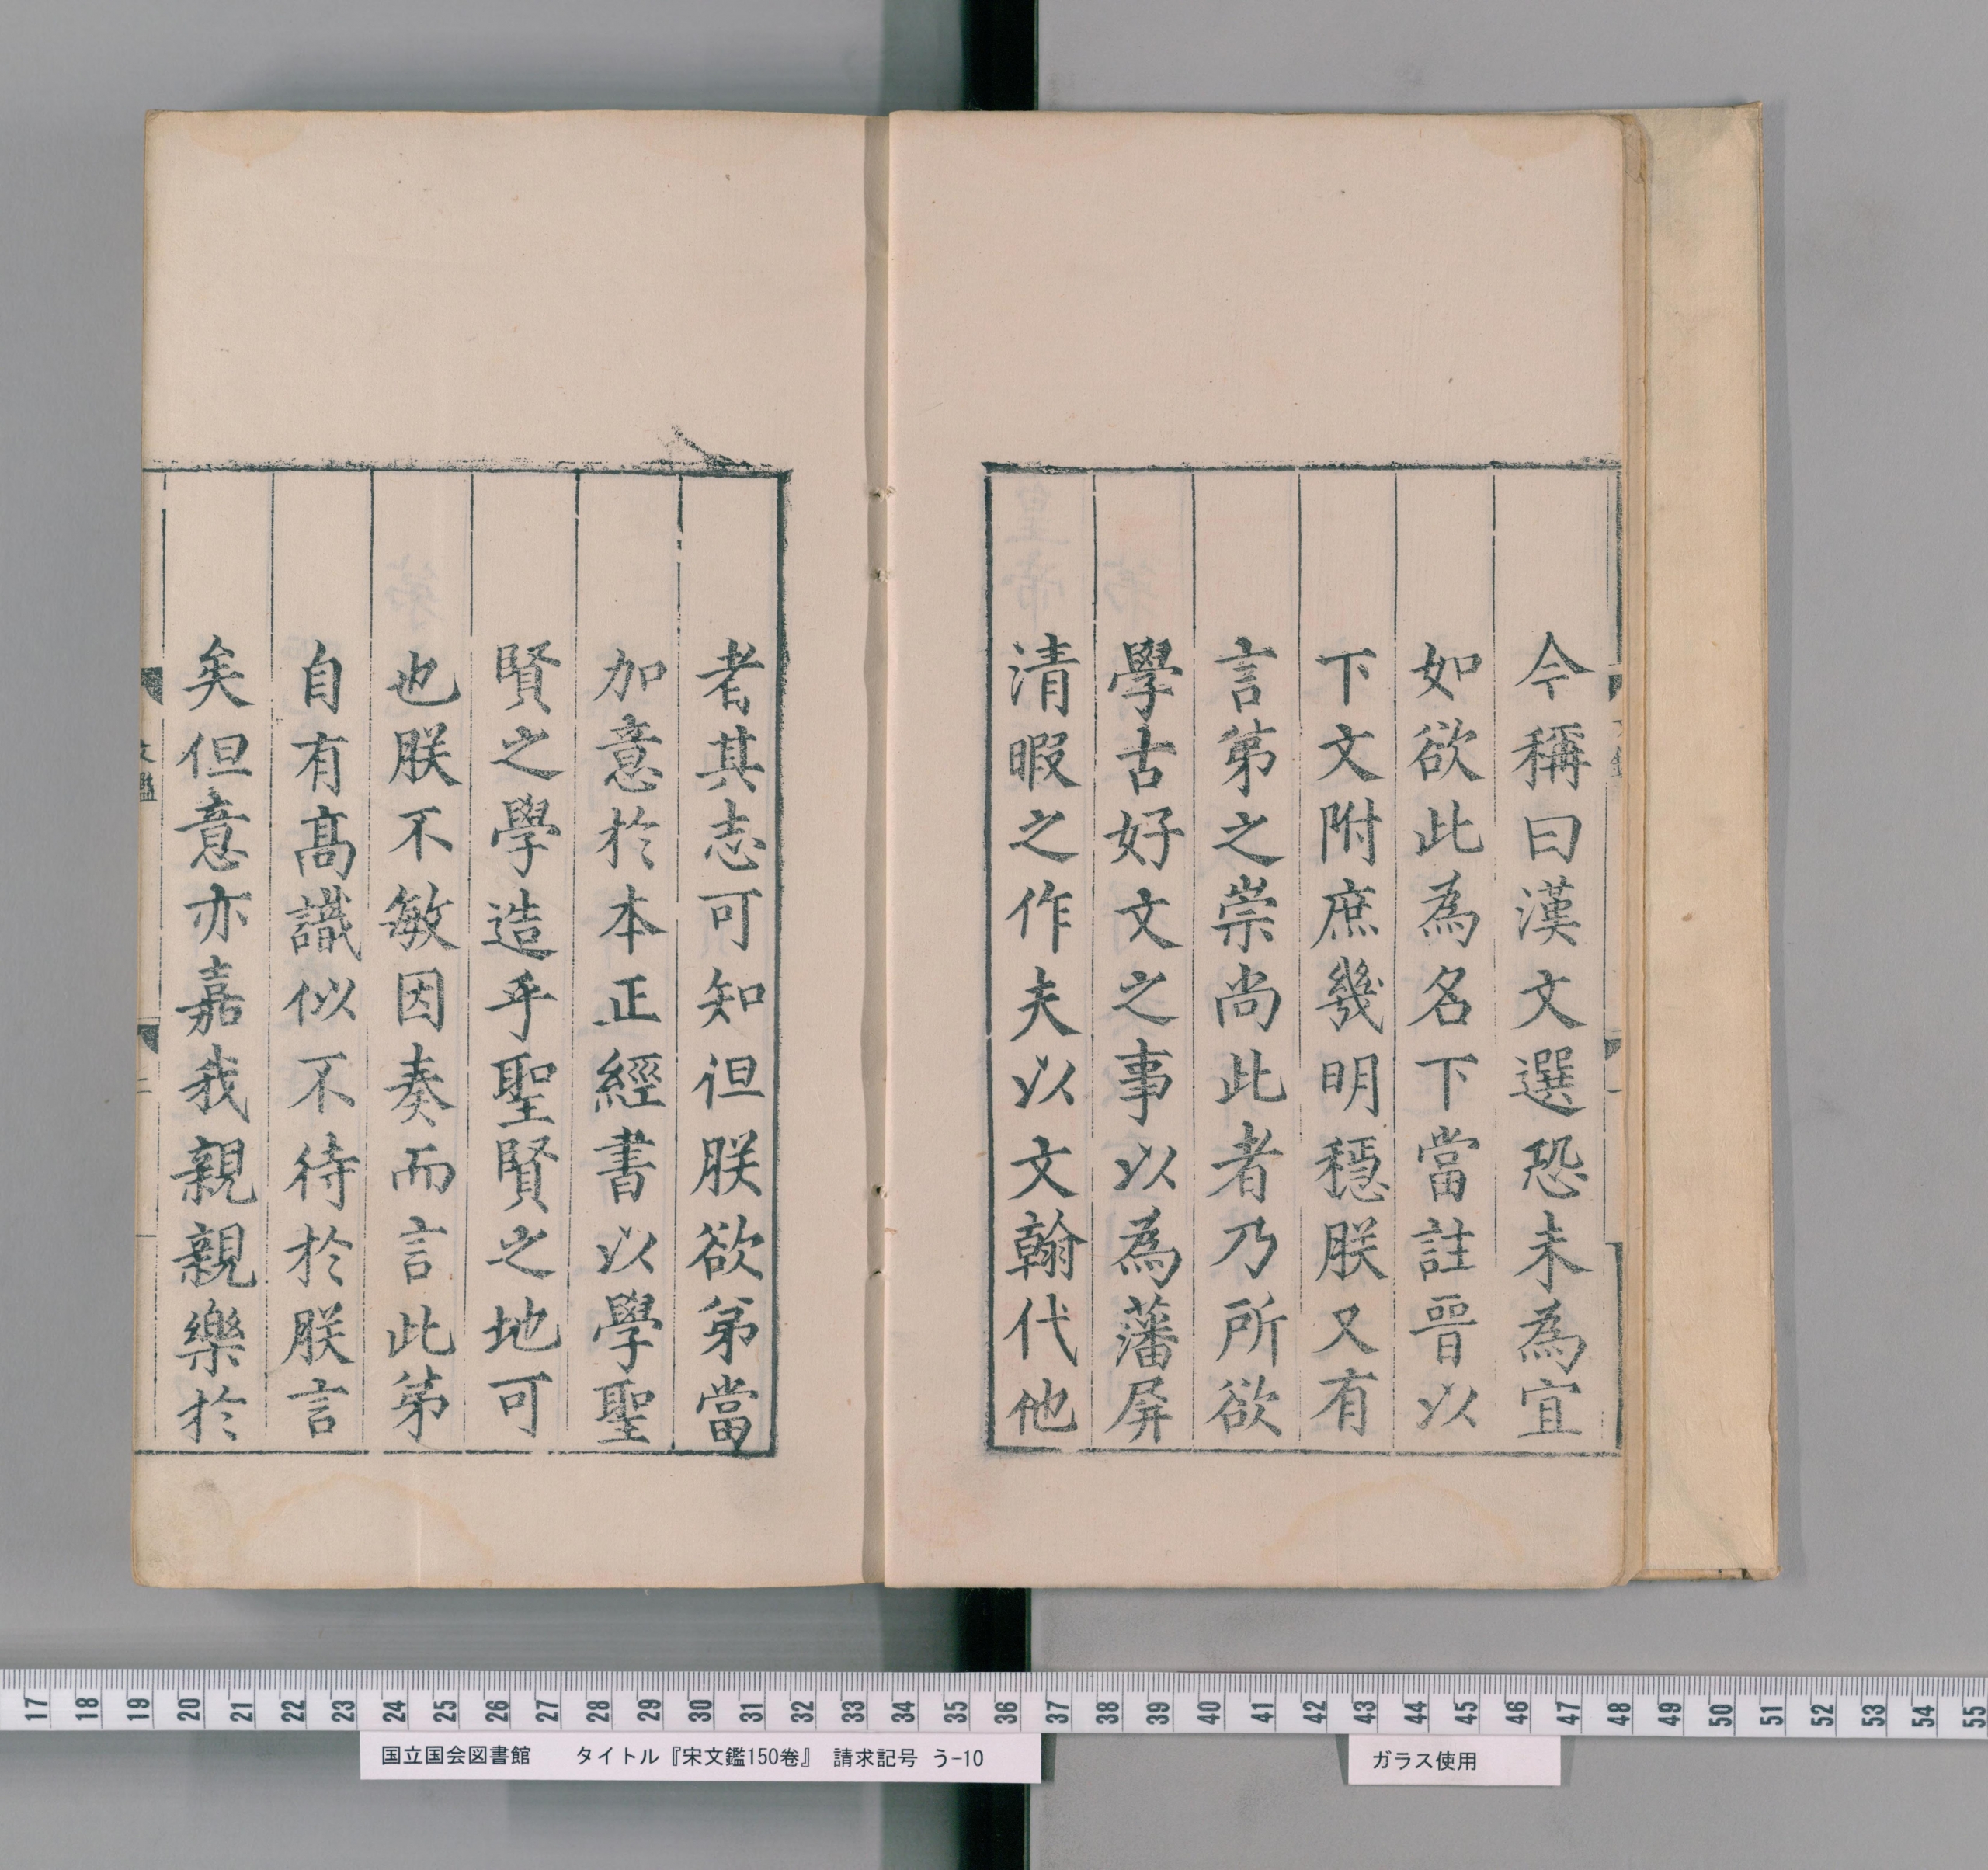 今稱曰漢文選恐未為宜
如欲此為名下當註晉以
下文附庶幾明穩朕又有
言苐之崇尚此者乃所欲
學古好文之事以為藩屏
清暇之作夫以文翰代他
者其志可知但朕欲苐當
加意於本正經書以學聖
賢之學造乎聖賢之地可
也朕不敏因奏而言此苐
自有高識似不待於朕言
矣但意亦嘉我親親樂於
文鑑
二
17 18 19 20 21 22 23 24 25 26 27 28 29 30 31 32 33 34 35 36 37 38 39 40 41 42 43 44 45 46 47 48 49 50 51 52 53 54 55
国立国会図書館 タイトル『宋文鑑150巻』 請求記号 う-10
ガラス使用